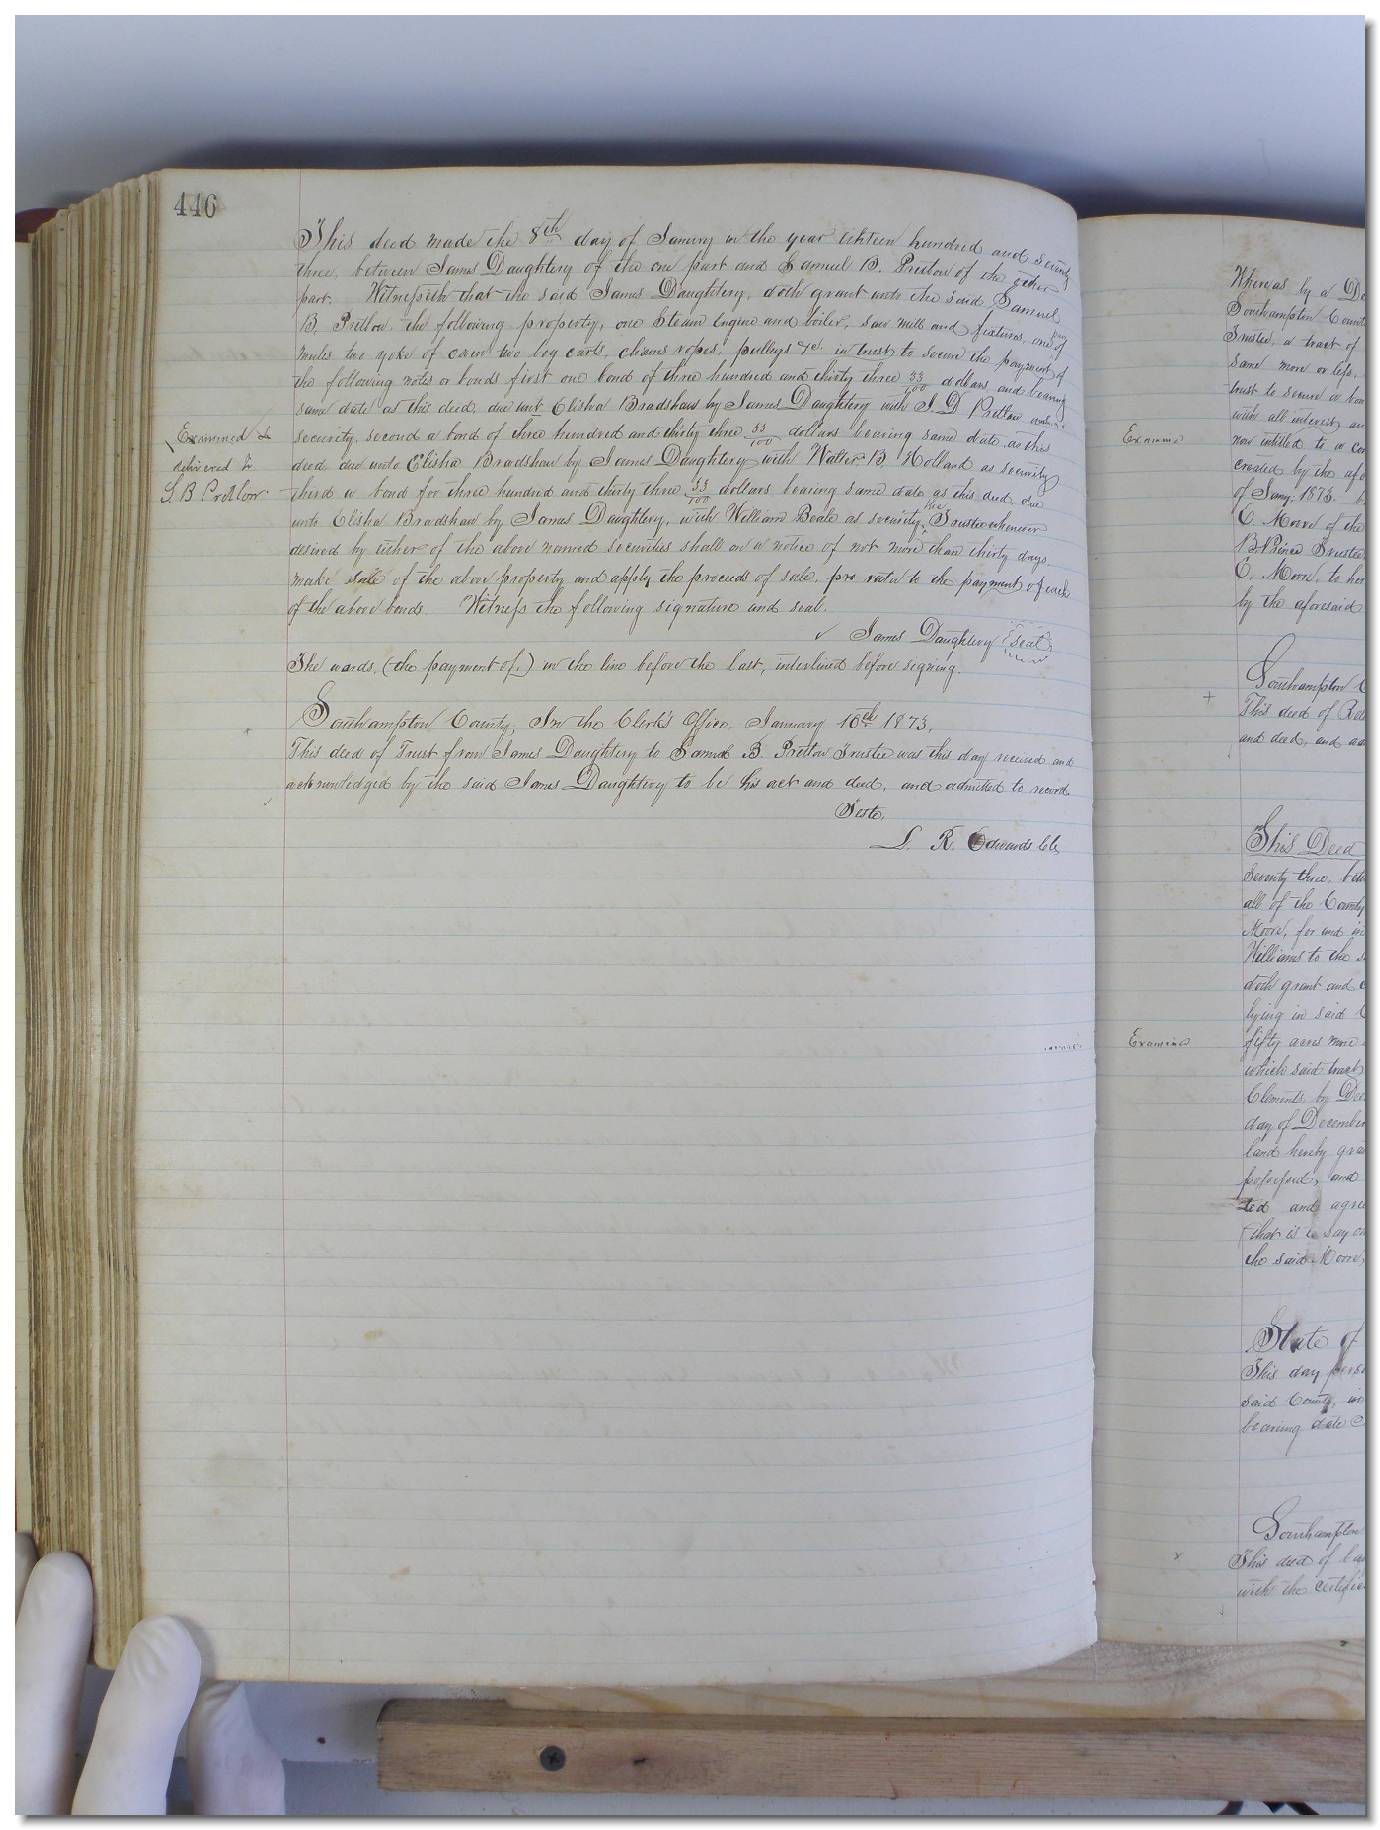 446
This deed made the 8th day of Janury in the year eihteen hundred and seventy
three, between James Daughtery of the one part and Samuel B. Pretlow of the other
part. Witnesseth that the said James Daughtery, doth grant unto the said Samuel
B. Pretlow the following property, one Steam Engine and boiler, saw mill and fixtures, one
mules two yoke of oxen two log carts, chains ropes, pulleys &c. in trust to secure the payment of
the following notes or bonds first one bond of three hundred and thirty three 33/100 dollars and bearing
same date as this deed, due unto Elisha Bradshaw by James Daughtery with J. D Pretlow
security, second a bond of three hundred and thirty three 33/100 dollars bearing same date as this
deed due unto Elisha Bradshaw by James Daughtery with Walter B. Holland as security
third a bond for three hundred and thirty three 33/100 dollars bearing same date as this deed, due
unto Elisha Bradshaw by James Daughtery, with William Beale as security, the Trustee whenever
desired by either of the above named securities shall on a notice of not more than thirty days.
make sale of the above property and apply the proceeds of sale, pro rata to the payment of each
of the above bonds. Witness the following signature and seal.
James Daughtery seal
The words, (the payment of,) in the line before the last, interlined before signing.
Southampton County, In the Clerk's Office, January 16th 1873,
This deed of Trust from James Daughtery to Samuel B. Pretlow Trustee was this day received and
acknowledged by the said James Daughtery to be his act and deed, and admitted to record
Teste,
L. R. Edwards Clk
Examined &
delivered to
S B Pretlow
Whereas by a De
Southampton County
Trustee, a tract of
same more or less,
trust to secure a bon
with all interest an
Examined
now intitled to a co
created by the afo
of Jany. 1873.
E. Moore of the
B. Prince Trustee
E. Moore, to her
by the aforesaid
Southampton C
This deed of Rel
and deed, and ad
This Deed
Seventy three, betw
all of the County
Moore, for and in
Williams to the s
doth grant and c
lying in said C
Examined
fifty acres more
which said tract
Clements by Dee
day of December
land hereby gra
possessed, and
ted and agree
(that is to say on
the said Moore,
State of
This day perso
said County, in
bearing date
Southampton
This deed of ba
with the certific